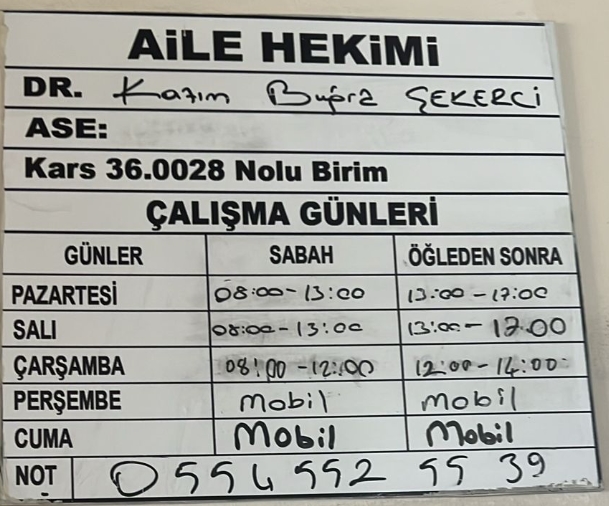 AiLE HEKiMi
DR. Kazım Buğra ŞEKERCİ
ASE:
Kars 36.0028 Nolu Birim
ÇALIŞMA GÜNLERİ
GÜNLER SABAH ÖĞLEDEN SONRA
PAZARTESİ 08:00-13:00 13:00-17:00
SALI 08:00-13:00 13:00-17:00
ÇARŞAMBA 08:00-12:00 12:00-14:00
PERŞEMBE Mobil Mobil
CUMA Mobil Mobil
NOT 0554 552 55 39